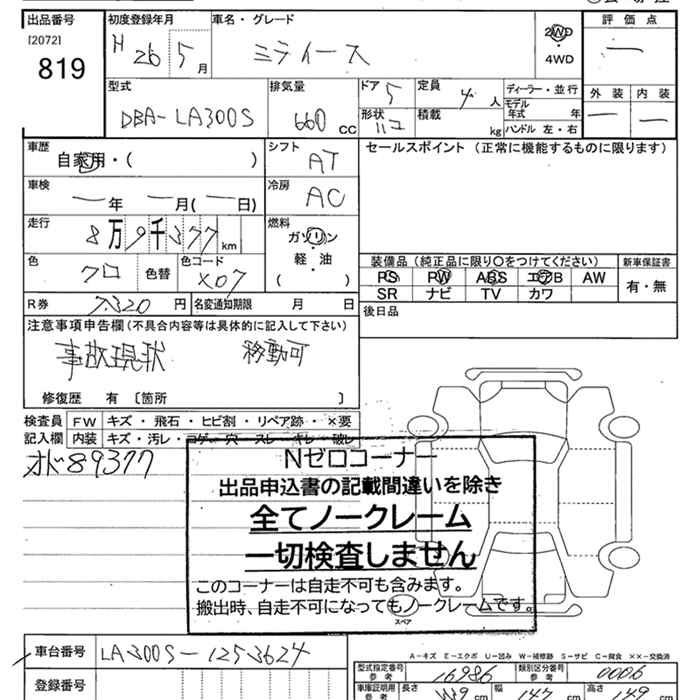 出品番号 [2072] 819
初度登録年月 H 26 5月
車名・グレード ミライース
2WD・4WD
評価点 ー
型式 DBA-LA300S
排気量 660 CC
ドア 5
形状 ハコ
定員 4人
積載 kg
ディーラー・並行
モデル年式 年
ハンドル 左・右
外装 内装
ー ー
車歴 自家用・( )
シフト AT
セールスポイント (正常に機能するものに限ります)
車検 ー年 ー月(ー日)
冷房 AC
走行 8万9千377km
燃料 ガソリン・軽・油 ( )
色 クロ 色替
色コード X07
装備品 (純正品に限り○をつけてください)
新車保証書
PS PW ABS エアB AW
有・無
SR ナビ TV カワ
R券 7.320 円 名変通知期限 月 日
後日品
注意事項申告欄(不具合内容等は具体的に記入して下さい)
事故現状 移動可
修復歴 有 〔箇所 〕
検査員記入欄
FW キズ・飛石・ヒビ割・リペア跡・×要
内装 キズ・汚レ・コゲ・穴・スレ・キレ・破レ
オド89377
Nゼロコーナー
出品申込書の記載間違いを除き
全てノークレーム
一切検査しません
このコーナーは自走不可も含みます。
搬出時、自走不可になってもノークレームです。
スペア
A-キズ E-エクボ U-凹み W-補修跡 S-サビ C-腐食 ××-交換済
車台番号 LA300S-1253624
型式指定番号 参考 16986
類別区分番号 参考 0006
登録番号
車庫証明用 参考 長さ 339 cm 幅 147 cm 高さ 149 cm